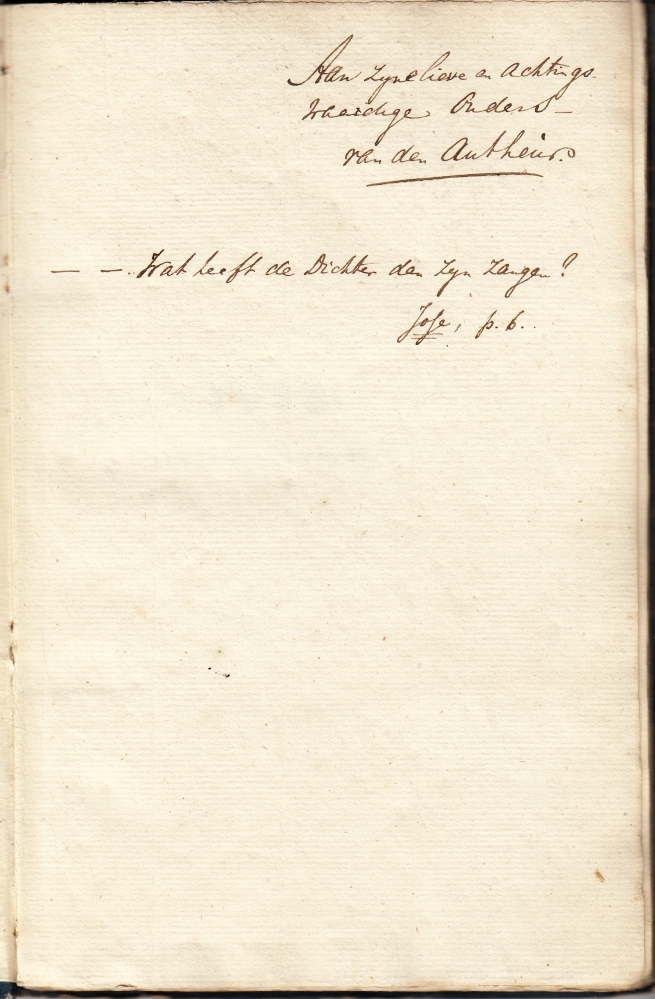 Aan zyne lieve en achtings-
waardige Ouders –
van den Autheur.
— — Wat heeft de Dichter dan zyn zangen?
Jose, p. 6.